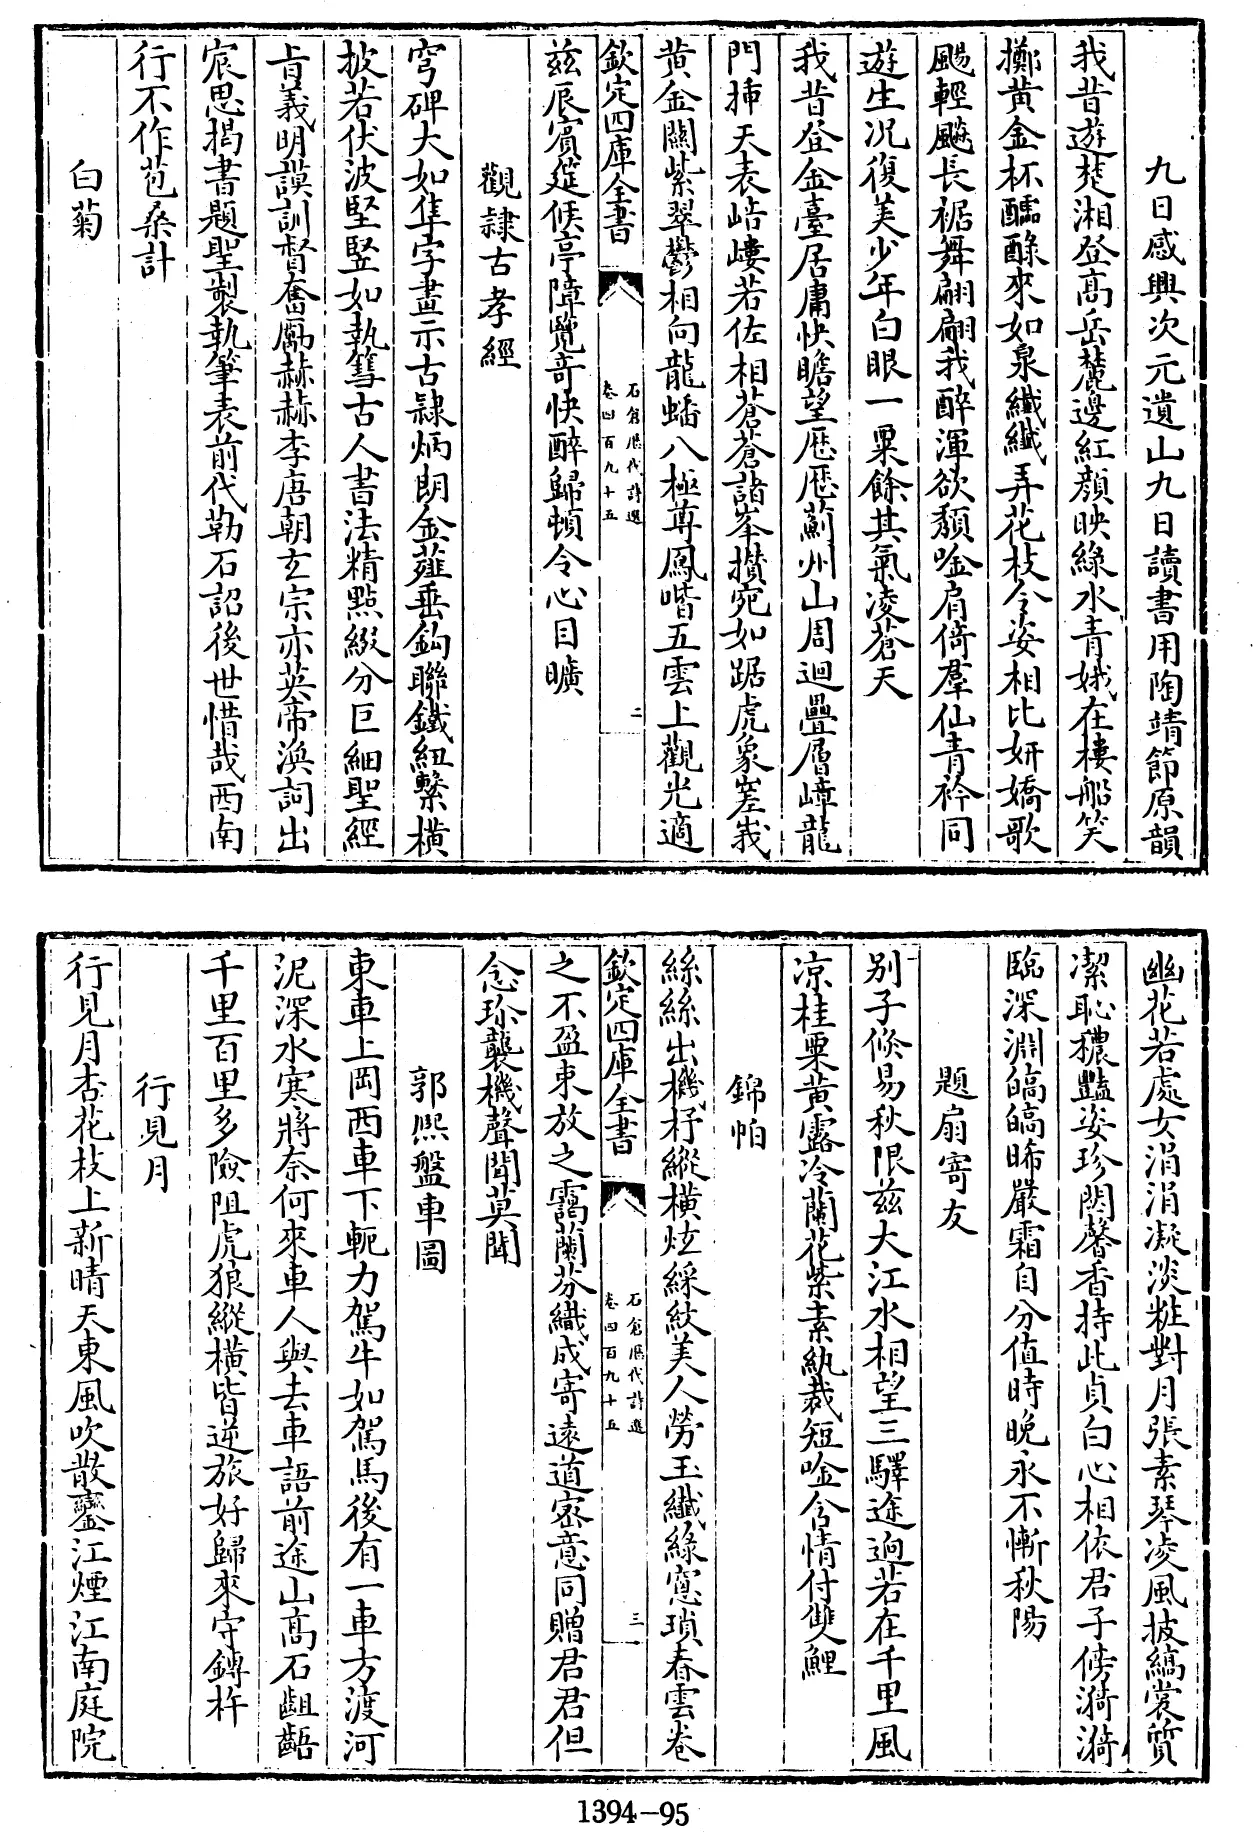 九日感興次元遺山九日讀書用陶靖節原韻
我昔遊楚湘登髙岳麓邊紅顔映綠水青娥在樓船笑
擲黄金杯醽醁來如泉纖纖弄花枝令姿相比妍嬌歌
颺輕飈長裾舞翩翩我醉渾欲頽唫肩倚羣仙青衿同
遊生况復美少年白眼一粟餘其氣凌蒼天
我昔登金臺居庸快瞻望厯厯薊州山周迴疊層嶂龍
門揷天表峿嶁若佐相蒼蒼諸峯攅宛如踞虎象嵳峩
黄金闕紫翠鬱相向龍蟠八極尊鳳喈五雲上觀光適
欽定四庫全書
石倉厯代詩選
卷四百九十五
二
兹辰賓筵候亭障覽竒快醉歸頓令心目曠
觀隷古孝經
穹碑大如隼字畫示古隷炳朗金薤垂鈎聯鐵紐繫橫
披若伏波堅竪如執篲古人書法精㸃綴分巨細聖經
㫖義明謨訓督奮勵赫赫李唐朝玄宗亦英帝渙詞出
宸思掲書題聖製執筆表前代勒石詔後世惜哉西南
行不作苞桑計
白菊
幽花若處女涓涓凝淡粧對月張素琴凌風披縞裳質
潔恥穠豔姿珍閟馨香持此貞白心相依君子傍漪漪
臨深淵皜皜晞嚴霜自分值時晚永不慚秋陽
題扇寄友
别子倐易秋限兹大江水相望三驛途逈若在千里風
凉桂粟黄露冷蘭花紫素紈裁短唫含情付雙鯉
錦帕
絲絲出機杼縱橫炫綵紋美人勞玉纖綠窻瑣春雲卷
欽定四庫全書
石倉厯代詩選
卷四百九十五
三
之不盈束放之靄蘭芬織成寄遠道密意同贈君君但
念珍襲機聲聞莫聞
郭熙盤車圖
東車上岡西車下軛力駕牛如駕馬後有一車方渡河
泥深水寒將奈何來車人與去車語前途山髙石齟齬
千里百里多險阻虎狼縱橫皆逆旅好歸來守鏄杵
行見月
行見月杏花枝上新晴天東風吹散鑾江煙江南庭院
1394-95